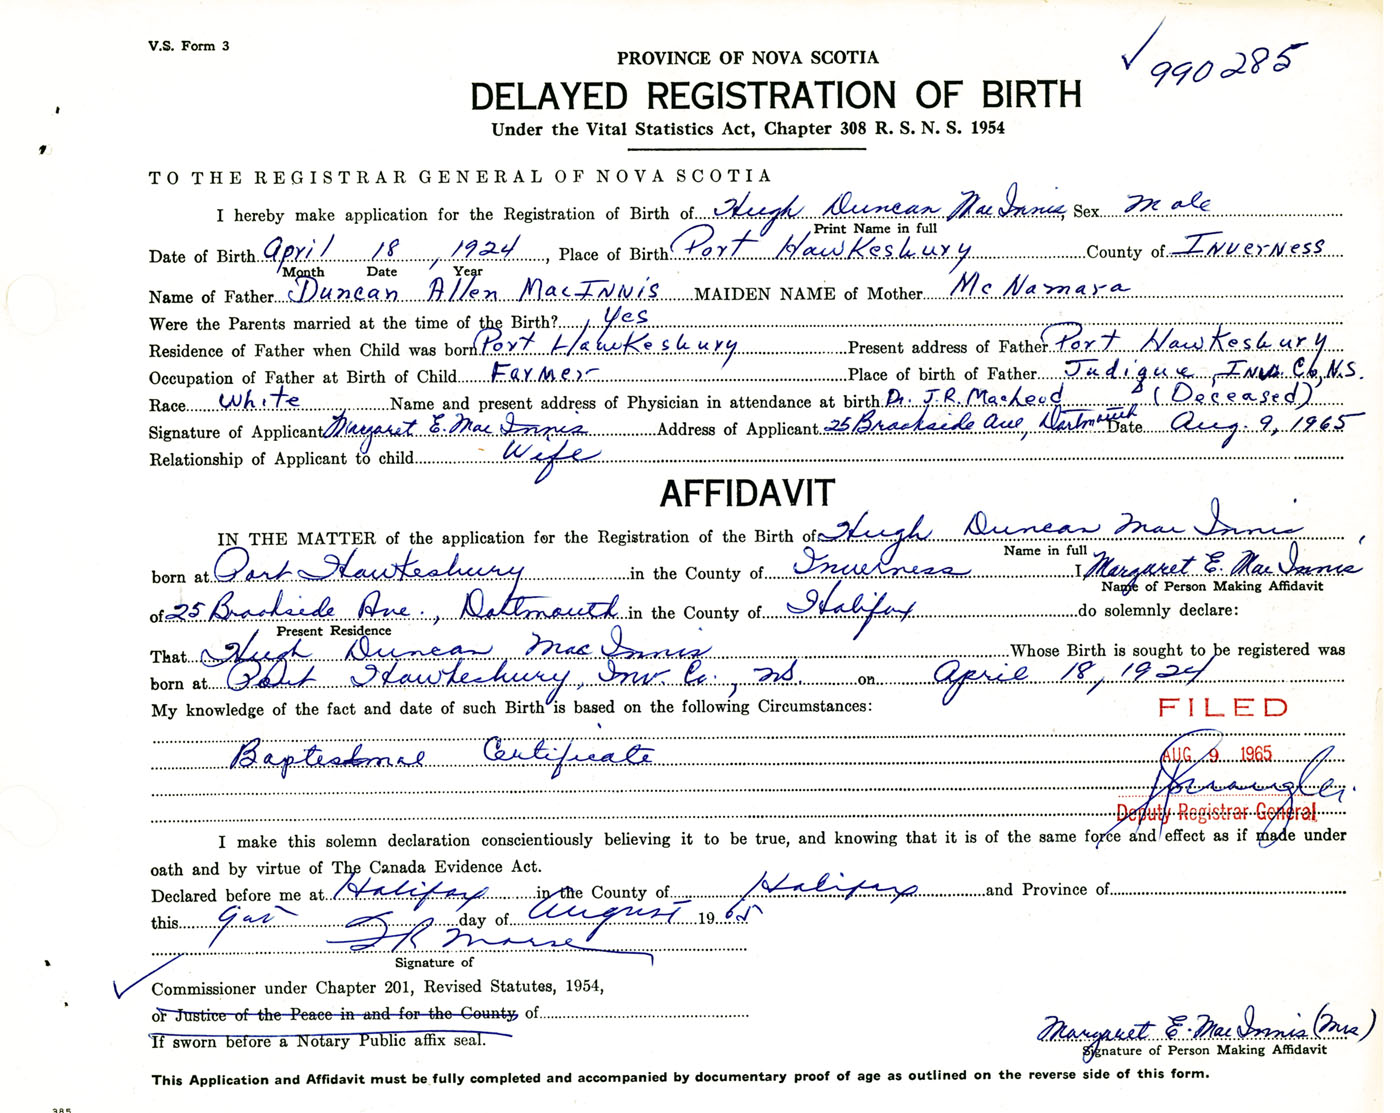 V.S. Form 3
990285
PROVINCE OF NOVA SCOTIA
DELAYED REGISTRATION OF BIRTH
Under the Vital Statistics Act, Chapter 308 R. S. N. S. 1954
TO THE REGISTRAR GENERAL OF NOVA SCOTIA
I hereby make application for the Registration of Birth of Hugh Duncan Mac Innis, Sex Male
Print Name in full
Date of Birth April 18, 1924, Place of Birth Port Hawkesbury County of Inverness
Month Date Year
Name of Father Duncan Allen MacInnis MAIDEN NAME of Mother McNamara
Were the Parents married at the time of the Birth? Yes
Residence of Father when Child was born Port Hawkesbury Present address of Father Port Hawkesbury
Occupation of Father at Birth of Child Farmer Place of birth of Father Judique, Inv. Co, N.S.
Race White Name and present address of Physician in attendance at birth Dr. J.R. MacLeod (Deceased)
Signature of Applicant Margaret E. Mac Innis Address of Applicant 25 Brookside Ave, Dartmouth Date Aug. 9, 1965
Relationship of Applicant to child Wife
AFFIDAVIT
IN THE MATTER of the application for the Registration of the Birth of Hugh Duncan Mac Innis,
Name in full
born at Port Hawkesbury in the County of Inverness I Margaret E. Mac Innis
Name of Person Making Affidavit
of 25 Brookside Ave., Dartmouth in the County of Halifax do solemnly declare:
Present Residence
That Hugh Duncan Mac Innis Whose Birth is sought to be registered was
born at Port Hawkesbury, Inv. Co., NS. on April 18, 1924
My knowledge of the fact and date of such Birth is based on the following Circumstances:
FILED
Baptesimal Certificate
AUG 9 1965
Deputy Registrar General
I make this solemn declaration conscientiously believing it to be true, and knowing that it is of the same force and effect as if made under
oath and by virtue of The Canada Evidence Act.
Declared before me at Halifax in the County of Halifax and Province of
this 9th day of August 1965
Signature of
Commissioner under Chapter 201, Revised Statutes, 1954,
or Justice of the Peace in and for the County of
If sworn before a Notary Public affix seal.
Margaret E. Mac Innis (Mrs)
Signature of Person Making Affidavit
This Application and Affidavit must be fully completed and accompanied by documentary proof of age as outlined on the reverse side of this form.
385